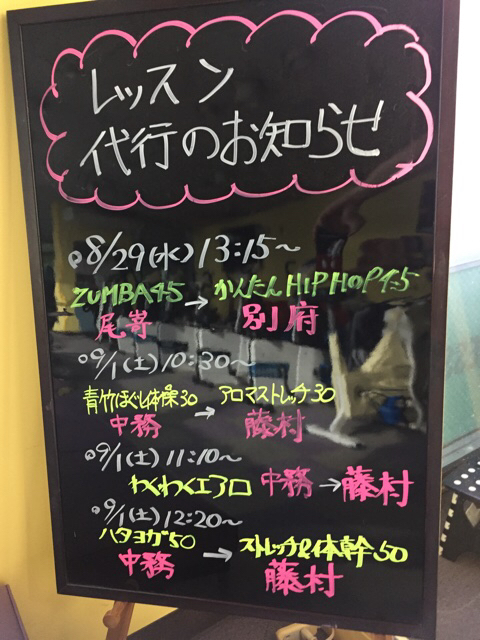 レッスン
代行のお知らせ
8/29(水)13:15~
ZUMBA45→かんたんHIPHOP45
尾嵜 別府
9/1(土)10:30~
青竹ほぐし体操30→アロマストレッチ30
中務 藤村
9/1(土)11:10~
わくわくエアロ 中務→藤村
9/1(土)12:20~
ハタヨガ50→ストレッチ&体幹50
中務 藤村